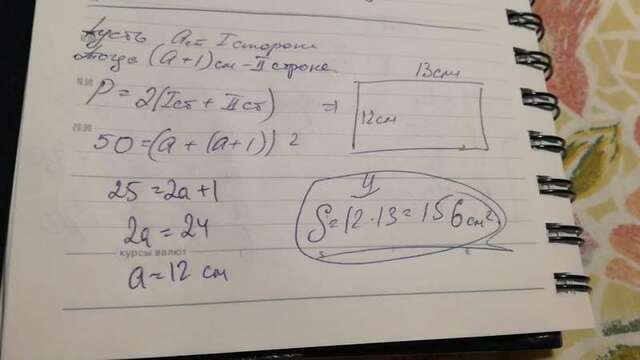 Пусть a см I сторона
тогда (a+1) см - II сторона
19.00
P = 2(I ст + II ст) =>
20.00
50 = (a + (a+1)) 2
25 = 2a + 1
2a = 24
курсы валют
a = 12 см
13 см
12 см
S = 12 · 13 = 156 см²